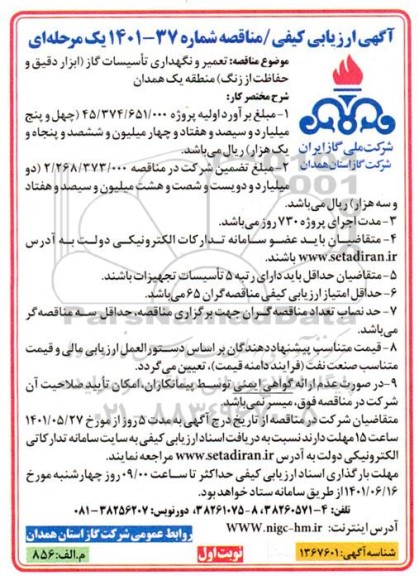 آگهی ارزیابی کیفی/مناقصه شماره ۳۷-۱۴۰۱ یک مرحله‌ای
موضوع مناقصه: تعمیر و نگهداری تأسیسات گاز (ابزار دقیق و
حفاظت از زنگ) منطقه یک همدان
شرح مختصر کار:
۱- مبلغ برآورد اولیه پروژه ۴۵/۳۷۴/۶۵۱/۰۰۰ (چهل و پنج
میلیارد و سیصد و هفتاد و چهار میلیون و ششصد و پنجاه و
یک هزار) ریال می‌باشد.
شرکت ملی گاز ایران
شرکت گاز استان همدان
۲- مبلغ تضمین شرکت در مناقصه ۲/۲۶۸/۳۷۳/۰۰۰ (دو
میلیارد و دویست و شصت و هشت میلیون و سیصد و هفتاد
و سه هزار) ریال می‌باشد.
۳- مدت اجرای پروژه ۷۳۰ روز می‌باشد.
۴- متقاضیان باید عضو سامانه تدارکات الکترونیکی دولت به آدرس
www.setadiran.ir باشند.
۵- متقاضیان حداقل باید دارای رتبه ۵ تأسیسات تجهیزات باشند.
۶- حداقل امتیاز ارزیابی کیفی مناقصه گران ۶۵ می‌باشد.
۷- حد نصاب تعداد مناقصه گران جهت برگزاری مناقصه، حداقل سه مناقصه گر
می‌باشد.
۸- قیمت متناسب پیشنهاد دهندگان بر اساس دستورالعمل ارزیابی مالی و قیمت
متناسب صنعت نفت (فرایند دامنه قیمت)، تعیین می‌گردد.
۹- در صورت عدم ارائه گواهی ایمنی توسط پیمانکاران، امکان تأیید صلاحیت آن
شرکت در مناقصه فوق، میسر نمی‌باشد.
متقاضیان شرکت در مناقصه از تاریخ درج آگهی به مدت ۵ روز از مورخ ۱۴۰۱/۰۵/۲۷
ساعت ۱۵ مهلت دارند نسبت به دریافت اسناد ارزیابی کیفی به سایت سامانه تدارکاتی
الکترونیکی دولت به آدرس www.setadiran.ir مراجعه نمایند.
مهلت بارگذاری اسناد ارزیابی کیفی حداکثر تا ساعت ۰۹/۰۰ روز چهارشنبه مورخ
۱۴۰۱/۰۶/۱۶ از طریق سامانه ستاد خواهد بود.
تلفن: ۴-۳۸۲۶۰۵۷۱، ۸-۳۸۲۶۱۰۷۵، دورنویس: ۳۸۲۵۶۲۰۷-۰۸۱
آدرس اینترنت: WWW.nigc-hm.ir
روابط عمومی شرکت گاز استان همدان
شناسه آگهی: ۱۳۶۷۶۰۱
نوبت اول
م.الف: ۸۵۶
ParsNamadData
۰۲۱-۸۸۳۴۹۶۷۰-۵